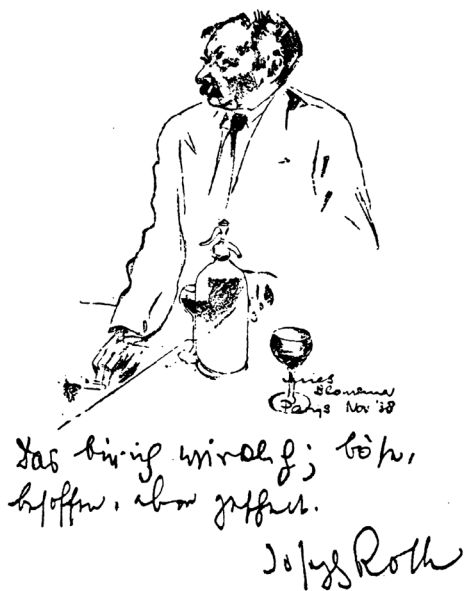 Mies
Blomsma
Parys Nov '38
Das bin ich wirklich; böse,
besoffen, aber gescheit.
Joseph Roth